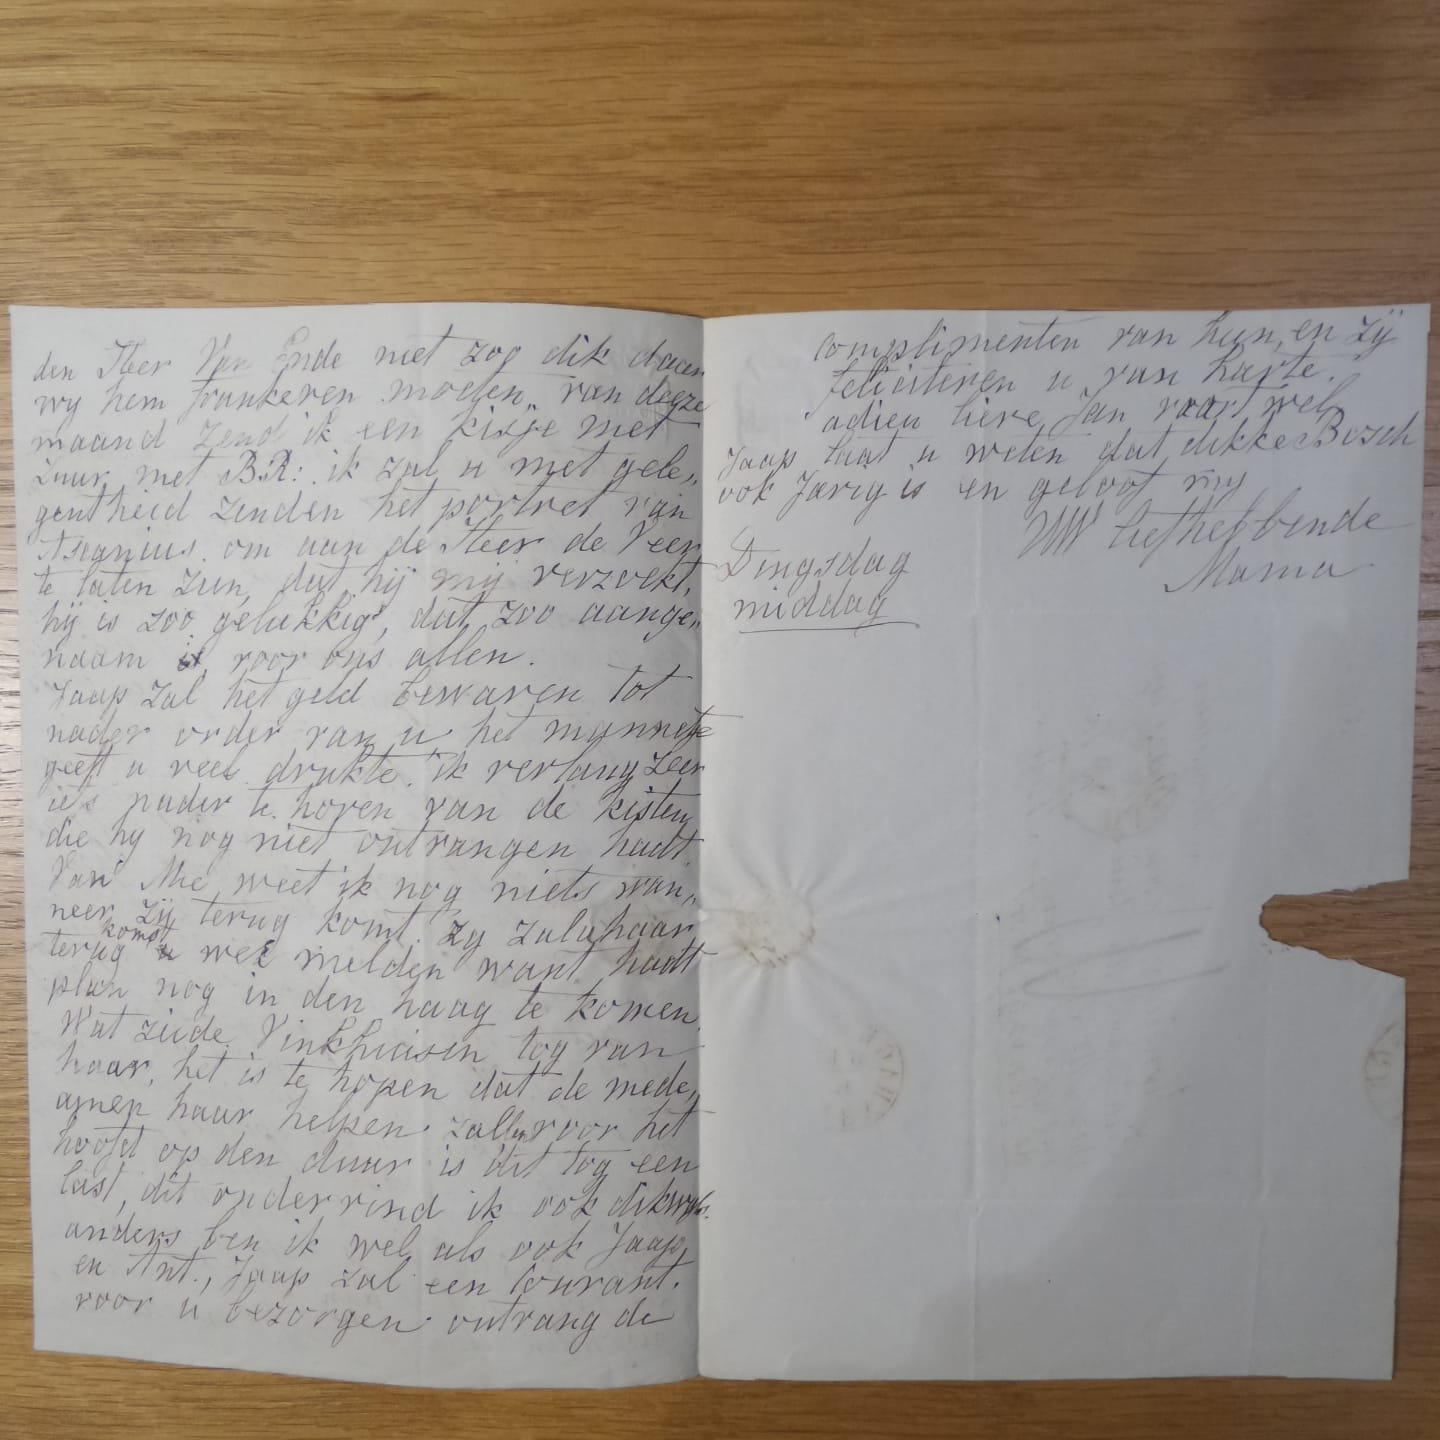 den Heer Van Ende niet zoo dik daar
wy hem frankeren moeten, van deeze
maand zend ik een kisje met
zuur met B.R: ik zal u met gele„
gentheid zenden het portret van
Ascanius om aan de Heer de Veer
te laten zien, dat hij mij verzoekt,
hij is zoo gelukkig, dat zoo aange„
naam is voor ons allen.
Jaap zal het geld bewaren tot
nader order van u het mannetje
geeft u veel drukte. ik verlang zeer
iets nader te horen van de kisten
die hy nog niet ontvangen hadt.
Van Mie weet ik nog niets wan„
neer zij terug komt. zy zal u haar
terug komst wel melden want hadt
plan nog in den haag te komen.
Wat zeide Vinkhuisen tog van
haar, het is te hopen dat de mede„
cynen haar helpen zallen voor het
hoofd op den duur is dit tog een
last, dit ondervind ik ook dikwyls.
anders ben ik wel als ook Jaap
en Ant., Jaap zal een Courant
voor u bezorgen ontvang de
Complimenten van hun, en zij
feliciteren u van harte.
adieu lieve Jan vaart wel
Jaap laat u weten dat dikke Bosch
ook Jarig is en geloof my
UW liefhebbende
Mama
Dingsdag
middag